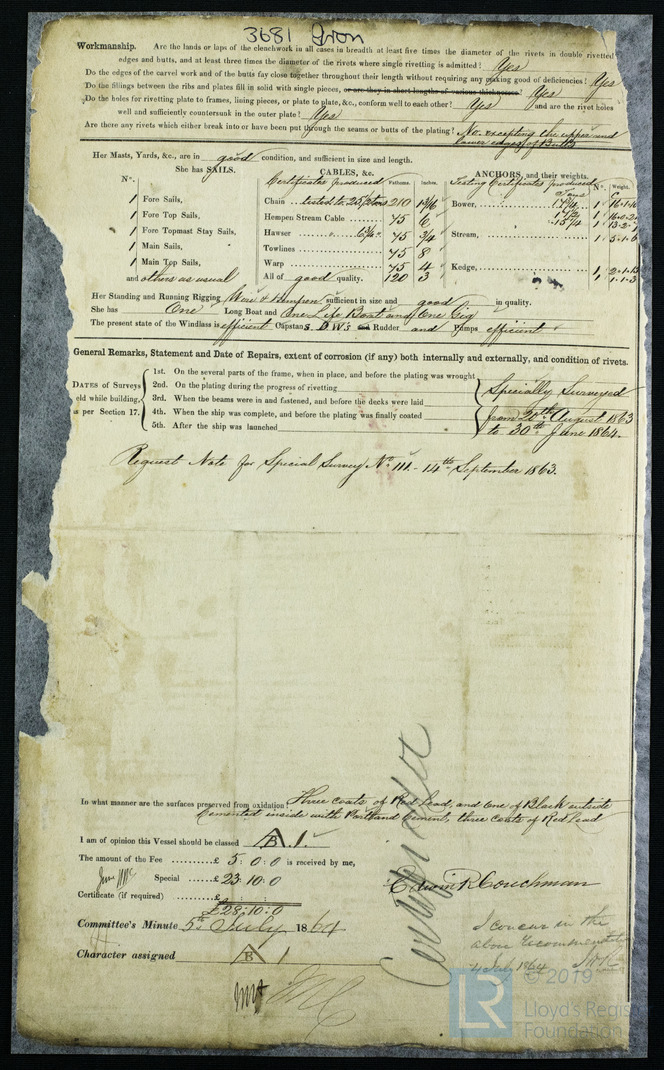 3681 Iron
Workmanship. Are the lands or laps of the clenchwork in all cases in breadth at least five times the diameter of the rivets in double rivetted
edges and butts, and at least three times the diameter of the rivets where single rivetting is admitted? Yes
Do the edges of the carvel work and of the butts fay close together throughout their length without requiring any making good of deficiencies? Yes
Do the fillings between the ribs and plates fill in solid with single pieces, or are they in short lengths of various thicknesses? Yes
Do the holes for rivetting plate to frames, lining pieces, or plate to plate, &c., conform well to each other? Yes and are the rivet holes
well and sufficiently countersunk in the outer plate? Yes
Are there any rivets which either break into or have been put through the seams or butts of the plating? No excepting the upper and
lower edges of Butts
Her Masts, Yards, &c., are in good condition, and sufficient in size and length.
She has SAILS.
No.
1 Fore Sails,
1 Fore Top Sails,
1 Fore Topmast Stay Sails,
1 Main Sails,
1 Main Top Sails,
and others as usual
CABLES, &c.
Certificates produced Fathoms. Inches.
Chain tested to 210
Hempen Stream Cable 75 6
Hawser 75 3/4
Towlines 75 8
Warp 75 4
All of good quality. 120 3
ANCHORS, and their weights.
Testing Certificates produced No. Weight.
Tons
Bower, 1
1
15 3/4 1
Stream, 1
Kedge, 1
1
Her Standing and Running Rigging Wire & Hempen sufficient in size and good in quality.
She has One Long Boat and One Life Boat and One Gig
The present state of the Windlass is efficient Capstan & D W's and Rudder and Pumps efficient
General Remarks, Statement and Date of Repairs, extent of corrosion (if any) both internally and externally, and condition of rivets.
DATES of Surveys
held while building,
as per Section 17.
1st. On the several parts of the frame, when in place, and before the plating was wrought
2nd. On the plating during the progress of rivetting
3rd. When the beams were in and fastened, and before the decks were laid
4th. When the ship was complete, and before the plating was finally coated
5th. After the ship was launched
Specially Surveyed
from 20th August 1863
to 30th June 1864.
Request Note for Special Survey No. 111 - 14th September 1863.
In what manner are the surfaces preserved from oxidation? Three coats of Red Lead, and one of Black outside
Cemented inside with Portland Cement, three coats of Red Lead
I am of opinion this Vessel should be classed A B 1.
The amount of the Fee £ 5 : 0 : 0 is received by me,
Special £ 23 : 10 : 0
Certificate (if required) £
£28 : 10 : 0
Edwin R Couchman
Committee's Minute 5th July 1864
Character assigned A B 1
I concur in the
above recommendation
4 July 1864
© 2019
LR
Lloyd's Register
Foundation